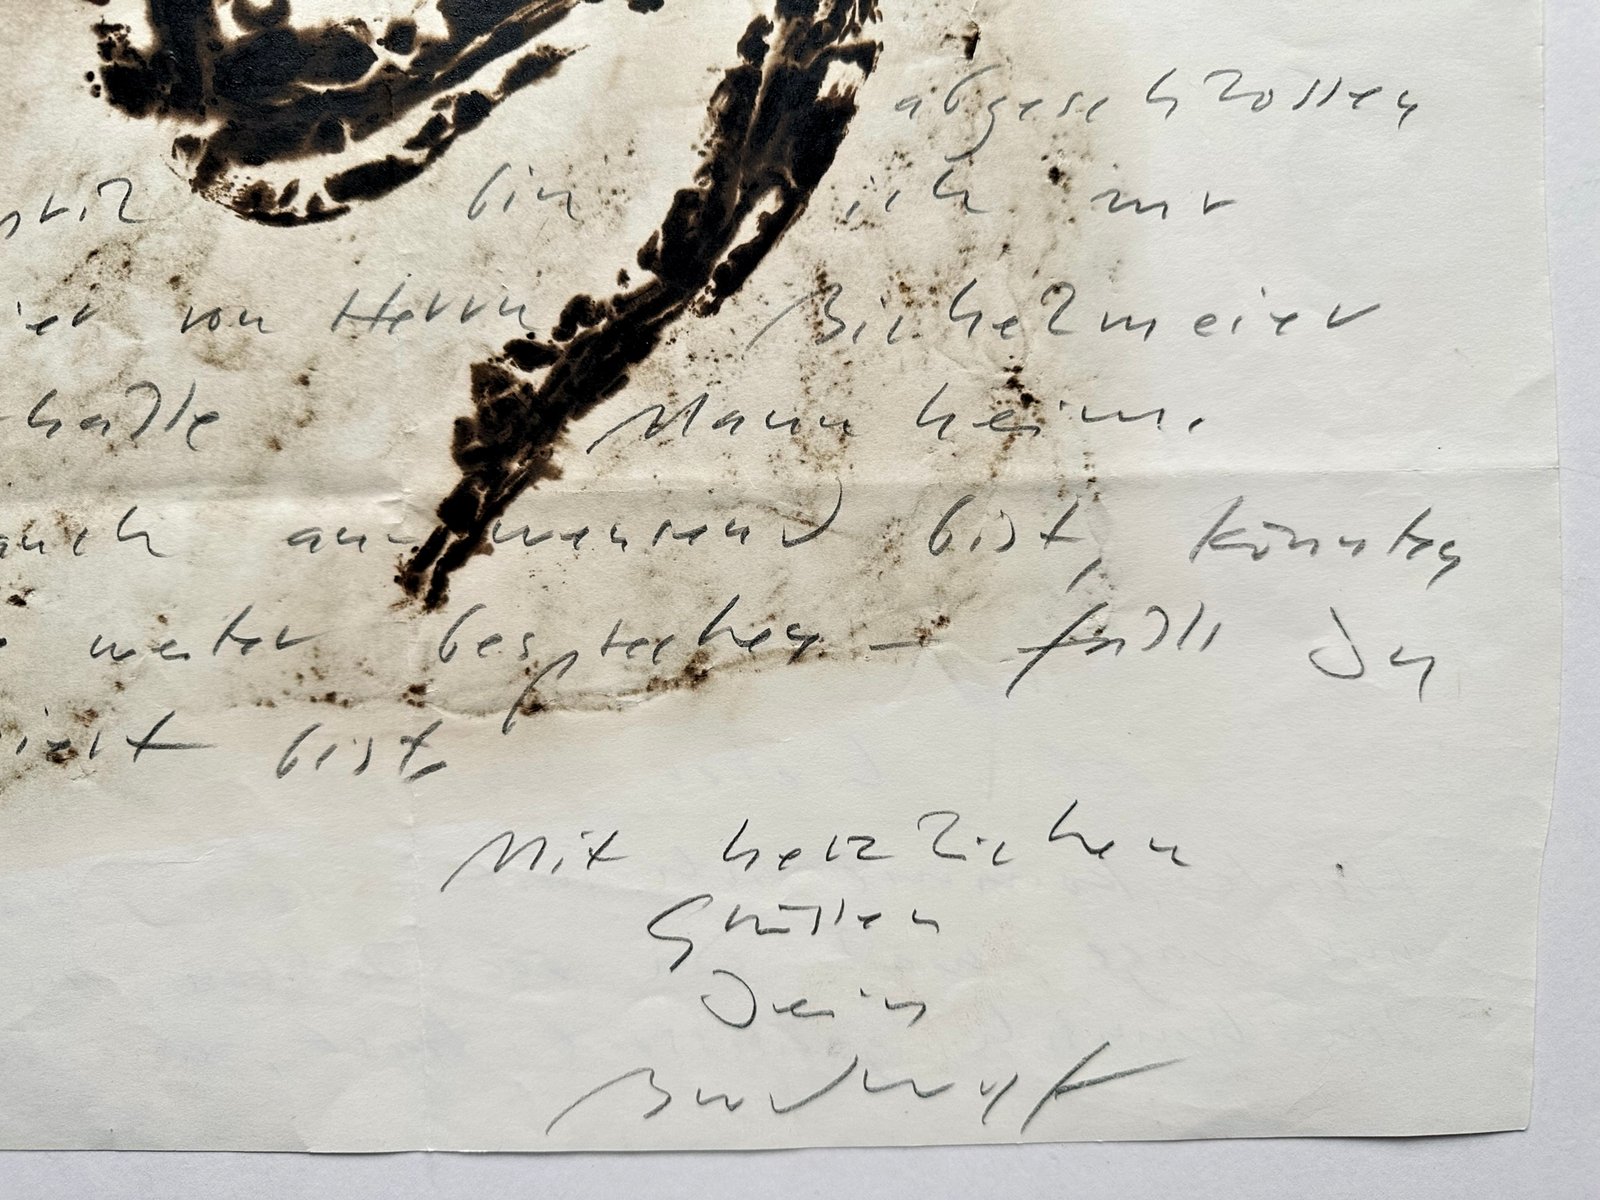 abgeschlossen
April bin ich mir
von Herrn Bichelmeier
halle Mannheim.
auch anwesend bist, könnten
weiter besprechen – falls Du
bist.
Mit herzlichen
Grüssen
Dein